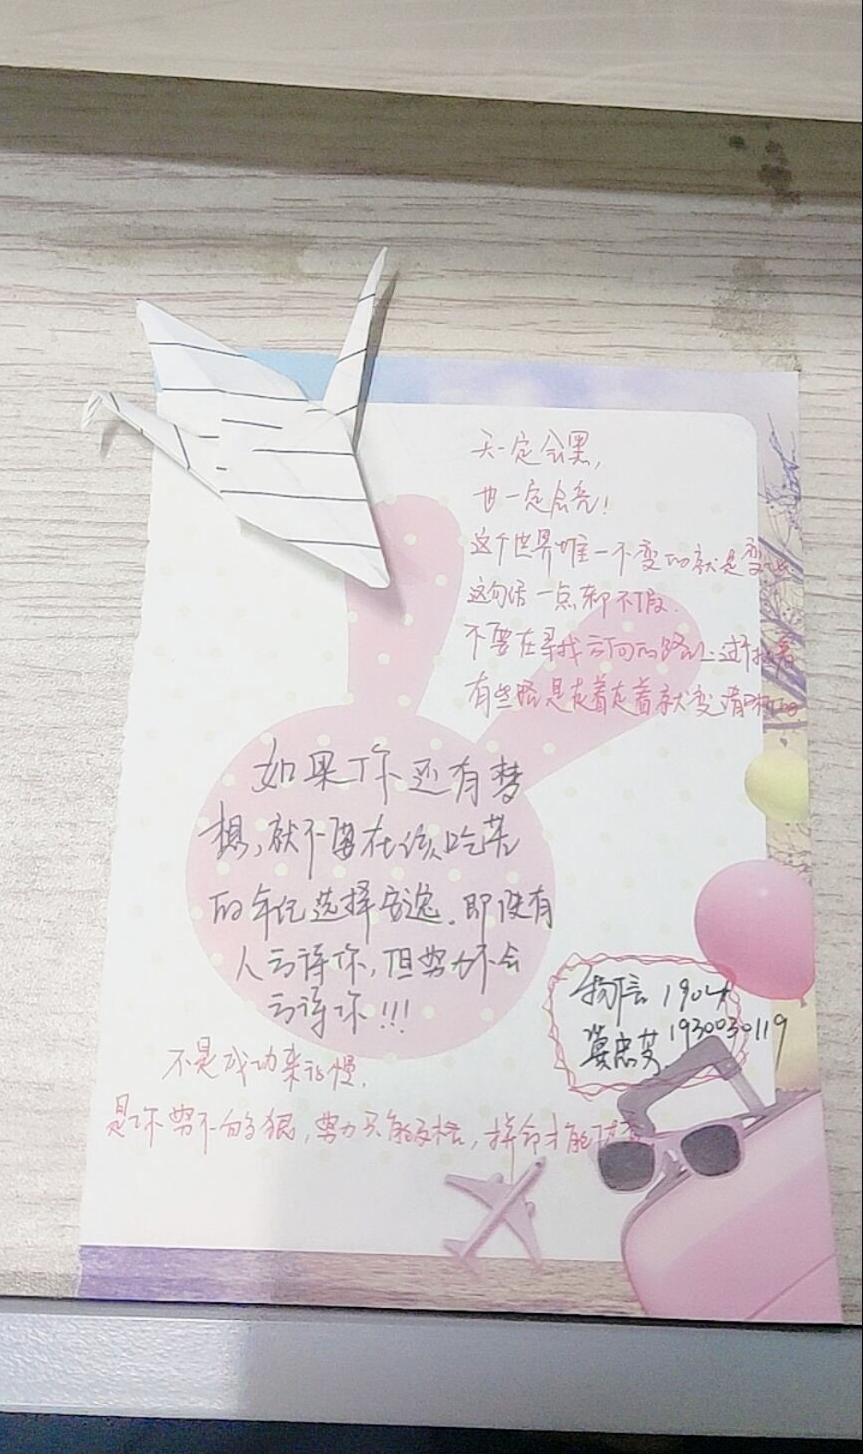 天一定会黑，
也一定会亮！
这个世界唯一不变的就是变化
这句话一点都不假.
不要在寻找方向的路上
有些路是走着走着就变清晰的
如果你还有梦
想，就不要在该吃苦
的年纪选择安逸.即使有
人亏待你，但努力不会
亏待你！！！
不是成功来得慢，
是你努不够狠，努力只能及格，拼命才能
物信1904
冀忠 1930030119